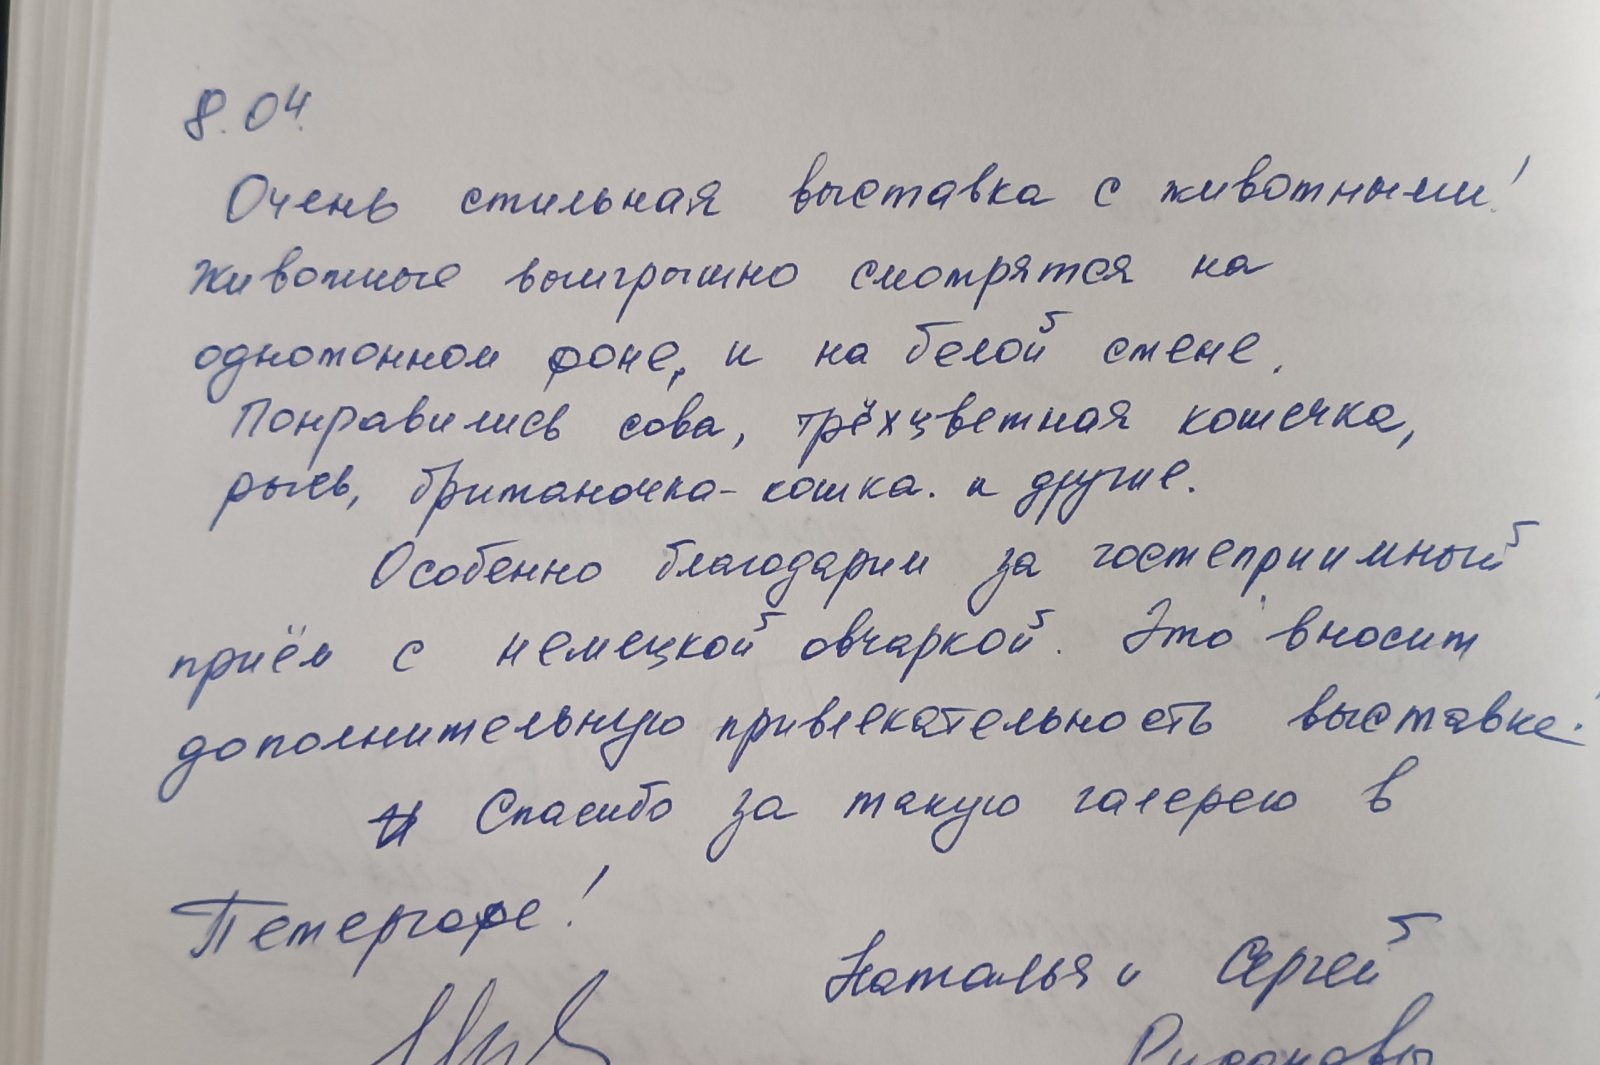 8.04.
Очень стильная выставка с животными!
Животные выигрышно смотрятся на
однотонном фоне, и на белой стене.
Понравились сова, трёхцветная кошечка,
рысь, британочка-кошка. и другие.
Особенно благодарим за гостеприимный
приём с немецкой овчаркой. Это вносит
дополнительную привлекательность выставке!
Спасибо за такую галерею в
Петергофе!
Наталья и Сергей